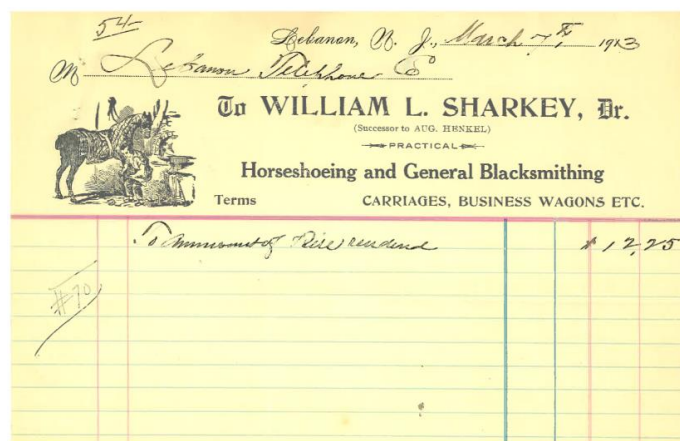 54
Lebanon, N. J., March 7th, 1913
M Lebanon Telephone Co
To WILLIAM L. SHARKEY, Dr.
(Successor to AUG. HENKEL)
PRACTICAL
Horseshoeing and General Blacksmithing
Terms CARRIAGES, BUSINESS WAGONS ETC.
To Ammount of $12,25
#70